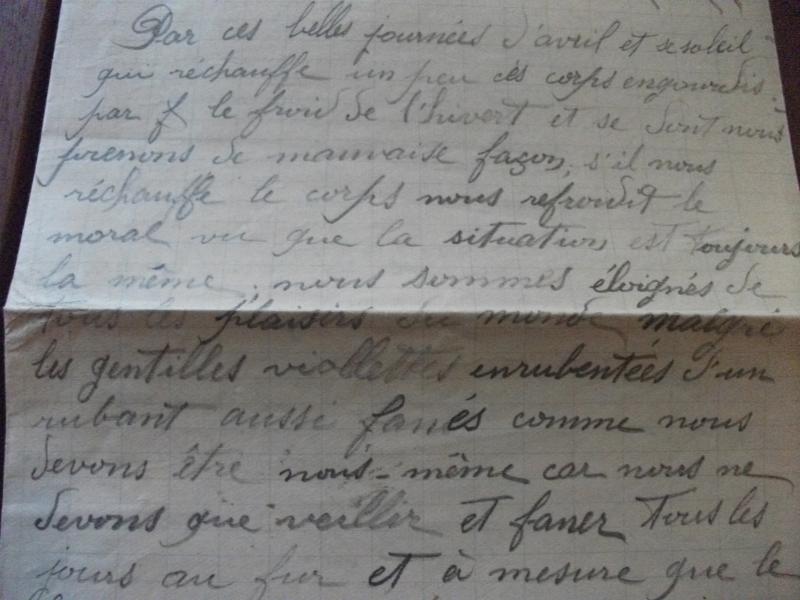 Par ces belles journées d'avril et se soleil
qui réchauffe un peu ces corps engourdis
par le froid de l'hivert et se dont nous
prenons de mauvaise façon, s'il nous
réchauffe le corps nous refroidit le
moral vu que la situation est toujours
la même. nous sommes éloignés de
tous les plaisirs du monde malgré
les gentilles viollettes enrubentées d'un
rubant aussi fanés comme nous
devons être nous-même car nous ne
devons que veillir et faner tous les
jours au fur et à mesure que le